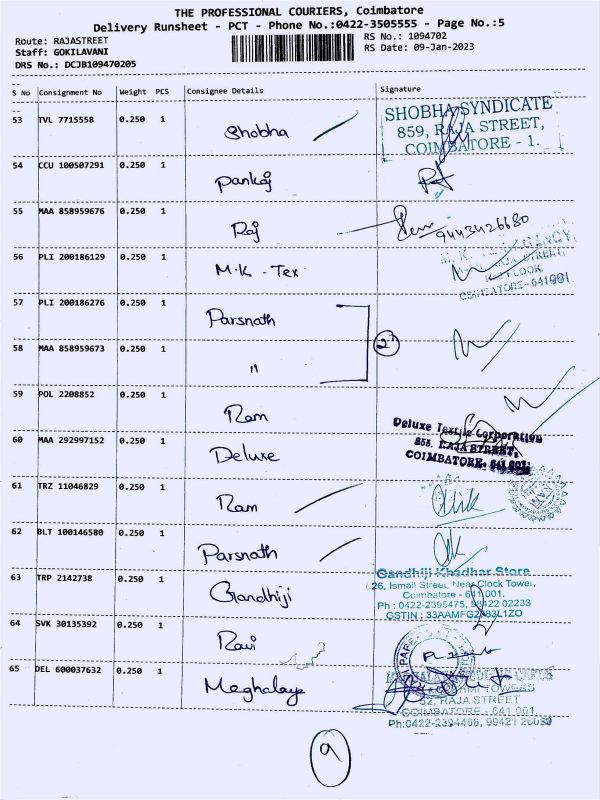 THE PROFESSIONAL COURIERS, Coimbatore
Delivery Runsheet - PCT - Phone No.:0422-3505555 - Page No.:5
Route: RAJASTREET
Staff: GOKILAVANI
DRS No.: DCJB109470205
RS No.: 1094702
RS Date: 09-Jan-2023
S No Consignment No Weight PCS Consignee Details Signature
53 TVL 7715558 0.250 1 Shobha
SHOBHA SYNDICATE
859, RAJA STREET,
COIMBATORE - 1.
54 CCU 100507291 0.250 1 Pankaj
55 MAA 858959676 0.250 1 Raj 9443426680
56 PLI 200186129 0.250 1 M.K - Tex
RAJA STREET,
FLOOR
COIMBATORE - 641001
57 PLI 200186276 0.250 1 Parsnath
58 MAA 858959673 0.250 1 "
59 POL 2208852 0.250 1 Ram
60 MAA 292997152 0.250 1 Deluxe
Deluxe Textile Corporation
855, RAJA STREET,
COIMBATORE - 641 001
61 TRZ 11046829 0.250 1 Ram
62 BLT 100146580 0.250 1 Parsnath
63 TRP 2142738 0.250 1 Gandhiji
Gandhiji Khadhar Store
26, Ismail Street, Near Clock Tower,
Coimbatore - 641 001.
Ph : 0422-2395475, 98422 02233
64 SVK 30135392 0.250 1 Ravi
65 DEL 600037632 0.250 1 Meghalaya
TOWERS
52, RAJA STREET
COIMBATORE - 641 001
Ph:0422-2394466, 99421
9